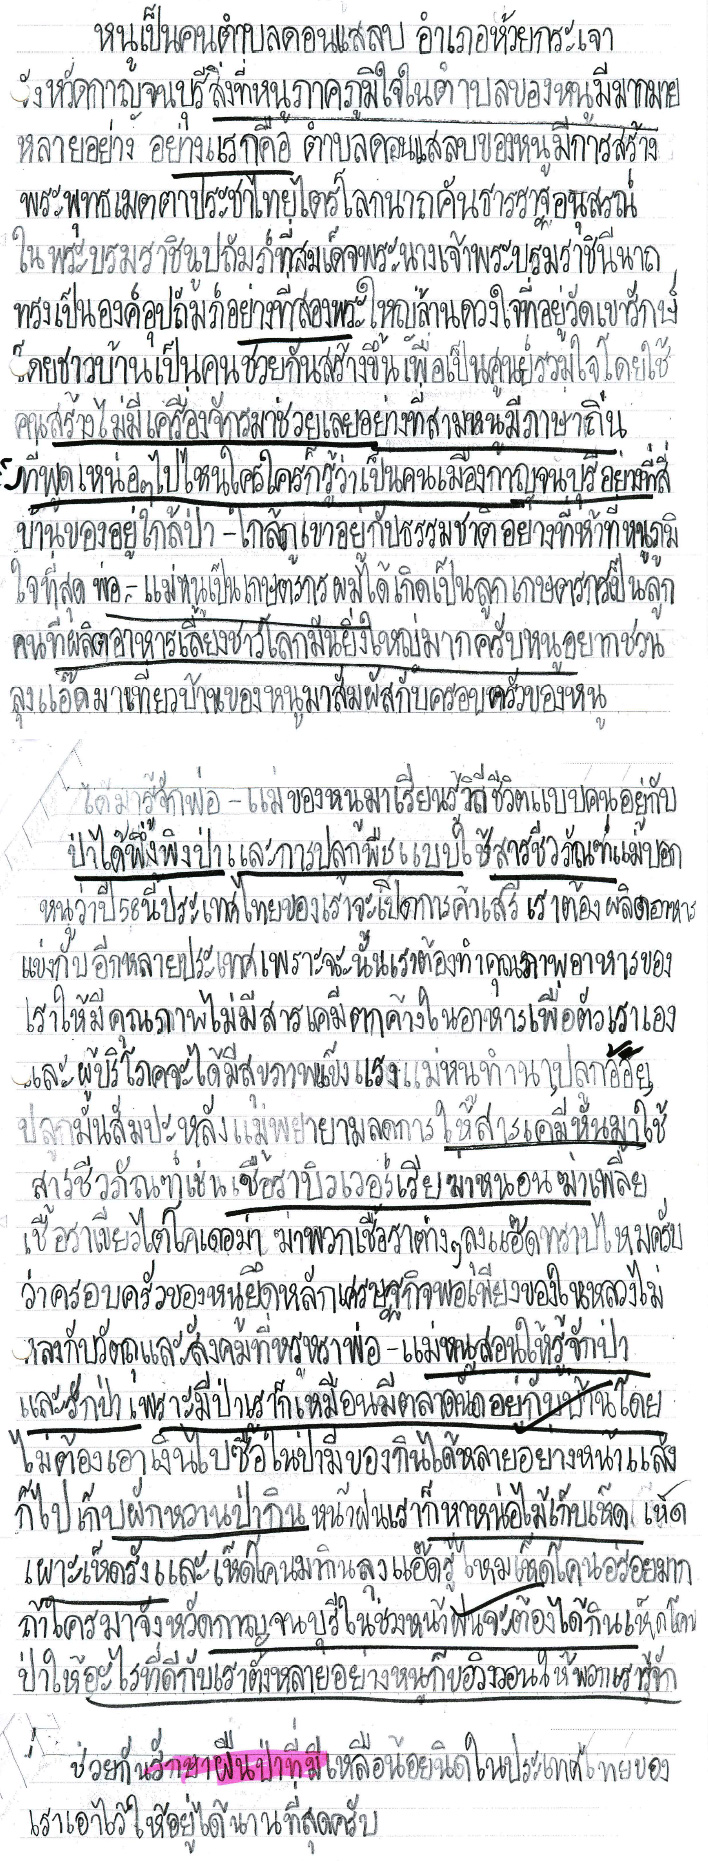 หนูเป็นคนตำบลดอนแสลบ อำเภอห้วยกระเจา
จังหวัดกาญจนบุรีสิ่งที่หนูภาคภูมิใจในตำบลของหนูมีมากมาย
หลายอย่าง อย่างแรกคือ ตำบลดอนแสลบของหนูมีการสร้าง
พระพุทธเมตตาประชาไทยไตรโลกนาถคันธารราฐอนุสรณ์
ในพระบรมราชินูปถัมภ์ที่สมเด็จพระนางเจ้าพระบรมราชินีนาถ
ทรงเป็นองค์อุปถัมภ์อย่างที่สองพระใหญ่ล้านดวงใจที่อยู่วัดเขารักษ์
โดยชาวบ้านเป็นคนช่วยกันสร้างขึ้นเพื่อเป็นศูนย์รวมใจโดยใช้
คนสร้างไม่มีเครื่องจักรมาช่วยเลยอย่างที่สามหนูมีภาษาถิ่น
ที่พูดเหน่อๆไปไหนใครใครก็รู้ว่าเป็นคนเมืองกาญจนบุรีอย่างที่สี่
บ้านของอยู่ใกล้ป่า - ใกล้ภูเขาอยู่กับธรรมชาติอย่างที่ห้าที่หนูภูมิ
ใจที่สุด พ่อ - แม่หนูเป็นเกษตรกรผมได้เกิดเป็นลูกเกษตรกรเป็นลูก
คนที่ผลิตอาหารเลี้ยงชาวโลกมันยิ่งใหญ่มากครับหนูอยากชวน
ลุงแอ๊ดมาเที่ยวบ้านของหนูมาสัมผัสกับครอบครัวของหนู
ได้มารู้จักพ่อ - แม่ของหนูมาเรียนรู้วิถีชีวิตแบบคนอยู่กับ
ป่าได้พึ่งพิงป่าและการปลูกพืชแบบใช้สารชีวภัณฑ์แม่บอก
หนูว่าปี 58 นี้ประเทศไทยของเราจะเปิดการค้าเสรี เราต้องผลิตอาหาร
แข่งกับอีกหลายประเทศเพราะฉะนั้นเราต้องทำคุณภาพอาหารของ
เราให้มีคุณภาพไม่มีสารเคมีตกค้างในอาหารเพื่อตัวเราเอง
และผู้บริโภคจะได้มีสุขภาพแข็งแรงแม่หนูทำนาปลูกอ้อย
ปลูกมันสัมปะหลังแม่พยายามลดการใช้สารเคมีหันมาใช้
สารชีวภัณฑ์เช่นเชื้อราบิวเวอร์เรียฆ่าหนอนฆ่าเพลี้ย
เชื้อราเขียวไตโคเดอม่า ฆ่าพวกเชื้อราต่างๆลุงแอ๊ดทราบไหมครับ
ว่าครอบครัวของหนูยึดหลักเศรษฐกิจพอเพียงของในหลวงไม่
หลงกับวัตถุและสังคมที่หรูหราพ่อ - แม่หนูสอนให้รู้จักป่า
และรักป่า เพราะมีป่าเราก็เหมือนมีตลาดนัดอยู่กับบ้านโดย
ไม่ต้องเอาเงินไปซื้อในป่ามีของกินได้หลายอย่างหน้าแล้ง
ก็ไปเก็บผักหวานป่ากิน หน้าฝนเราก็หาหน่อไม้เก็บเห็ด เห็ด
เผาะเห็ดรังและเห็ดโคนมากินลุงแอ๊ดรู้ไหมเห็ดโคนอร่อยมาก
ถ้าใครมาจังหวัดกาญจนบุรีในช่วงหน้าฝนจะต้องได้กินเห็ดโคน
ป่าให้อะไรที่ดีกับเราตั้งหลายอย่างหนูก็ขอวิงวอนให้พวกเรารู้จัก
ช่วยกันรักษาผืนป่าที่มีเหลือน้อยนิดในประเทศไทยของ
เราเอาไว้ให้อยู่ได้นานที่สุดครับ